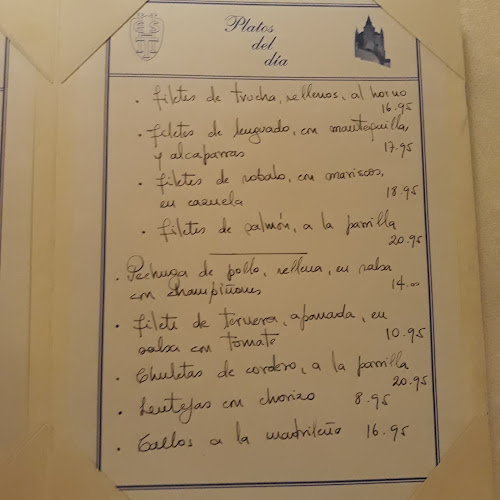 Platos
del
día
· Filetes de trucha, rellenos, al horno
16.95
· Filetes de lenguado, con mantequilla,
y alcaparras
17.95
· Filetes de robalo, con mariscos,
en cazuela
18.95
· Filetes de salmón, a la parrilla
20.95
· Pechuga de pollo, rellena, en salsa
con champiñones
14.00
· Filete de ternera, apanada, en
salsa con tomate
10.95
· Chuletas de cordero, a la parrilla
20.95
· Lentejas con chorizo 8.95
· Callos a la madrileña 16.95